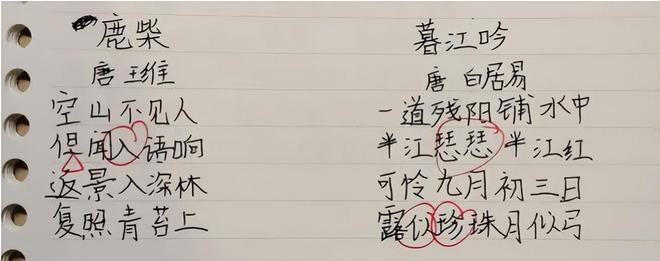 鹿柴
唐 王维
空山不见人
但闻入语响
返景入深林
复照青苔上
暮江吟
唐 白居易
一道残阳铺水中
半江瑟瑟半江红
可怜九月初三日
露似珍珠月似弓